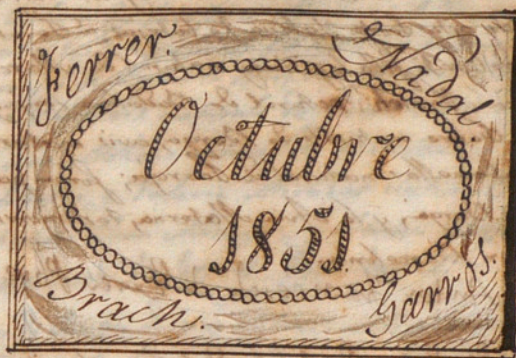 Ferrer.
Nadal.
Octubre
1851.
Brach.
Garros.